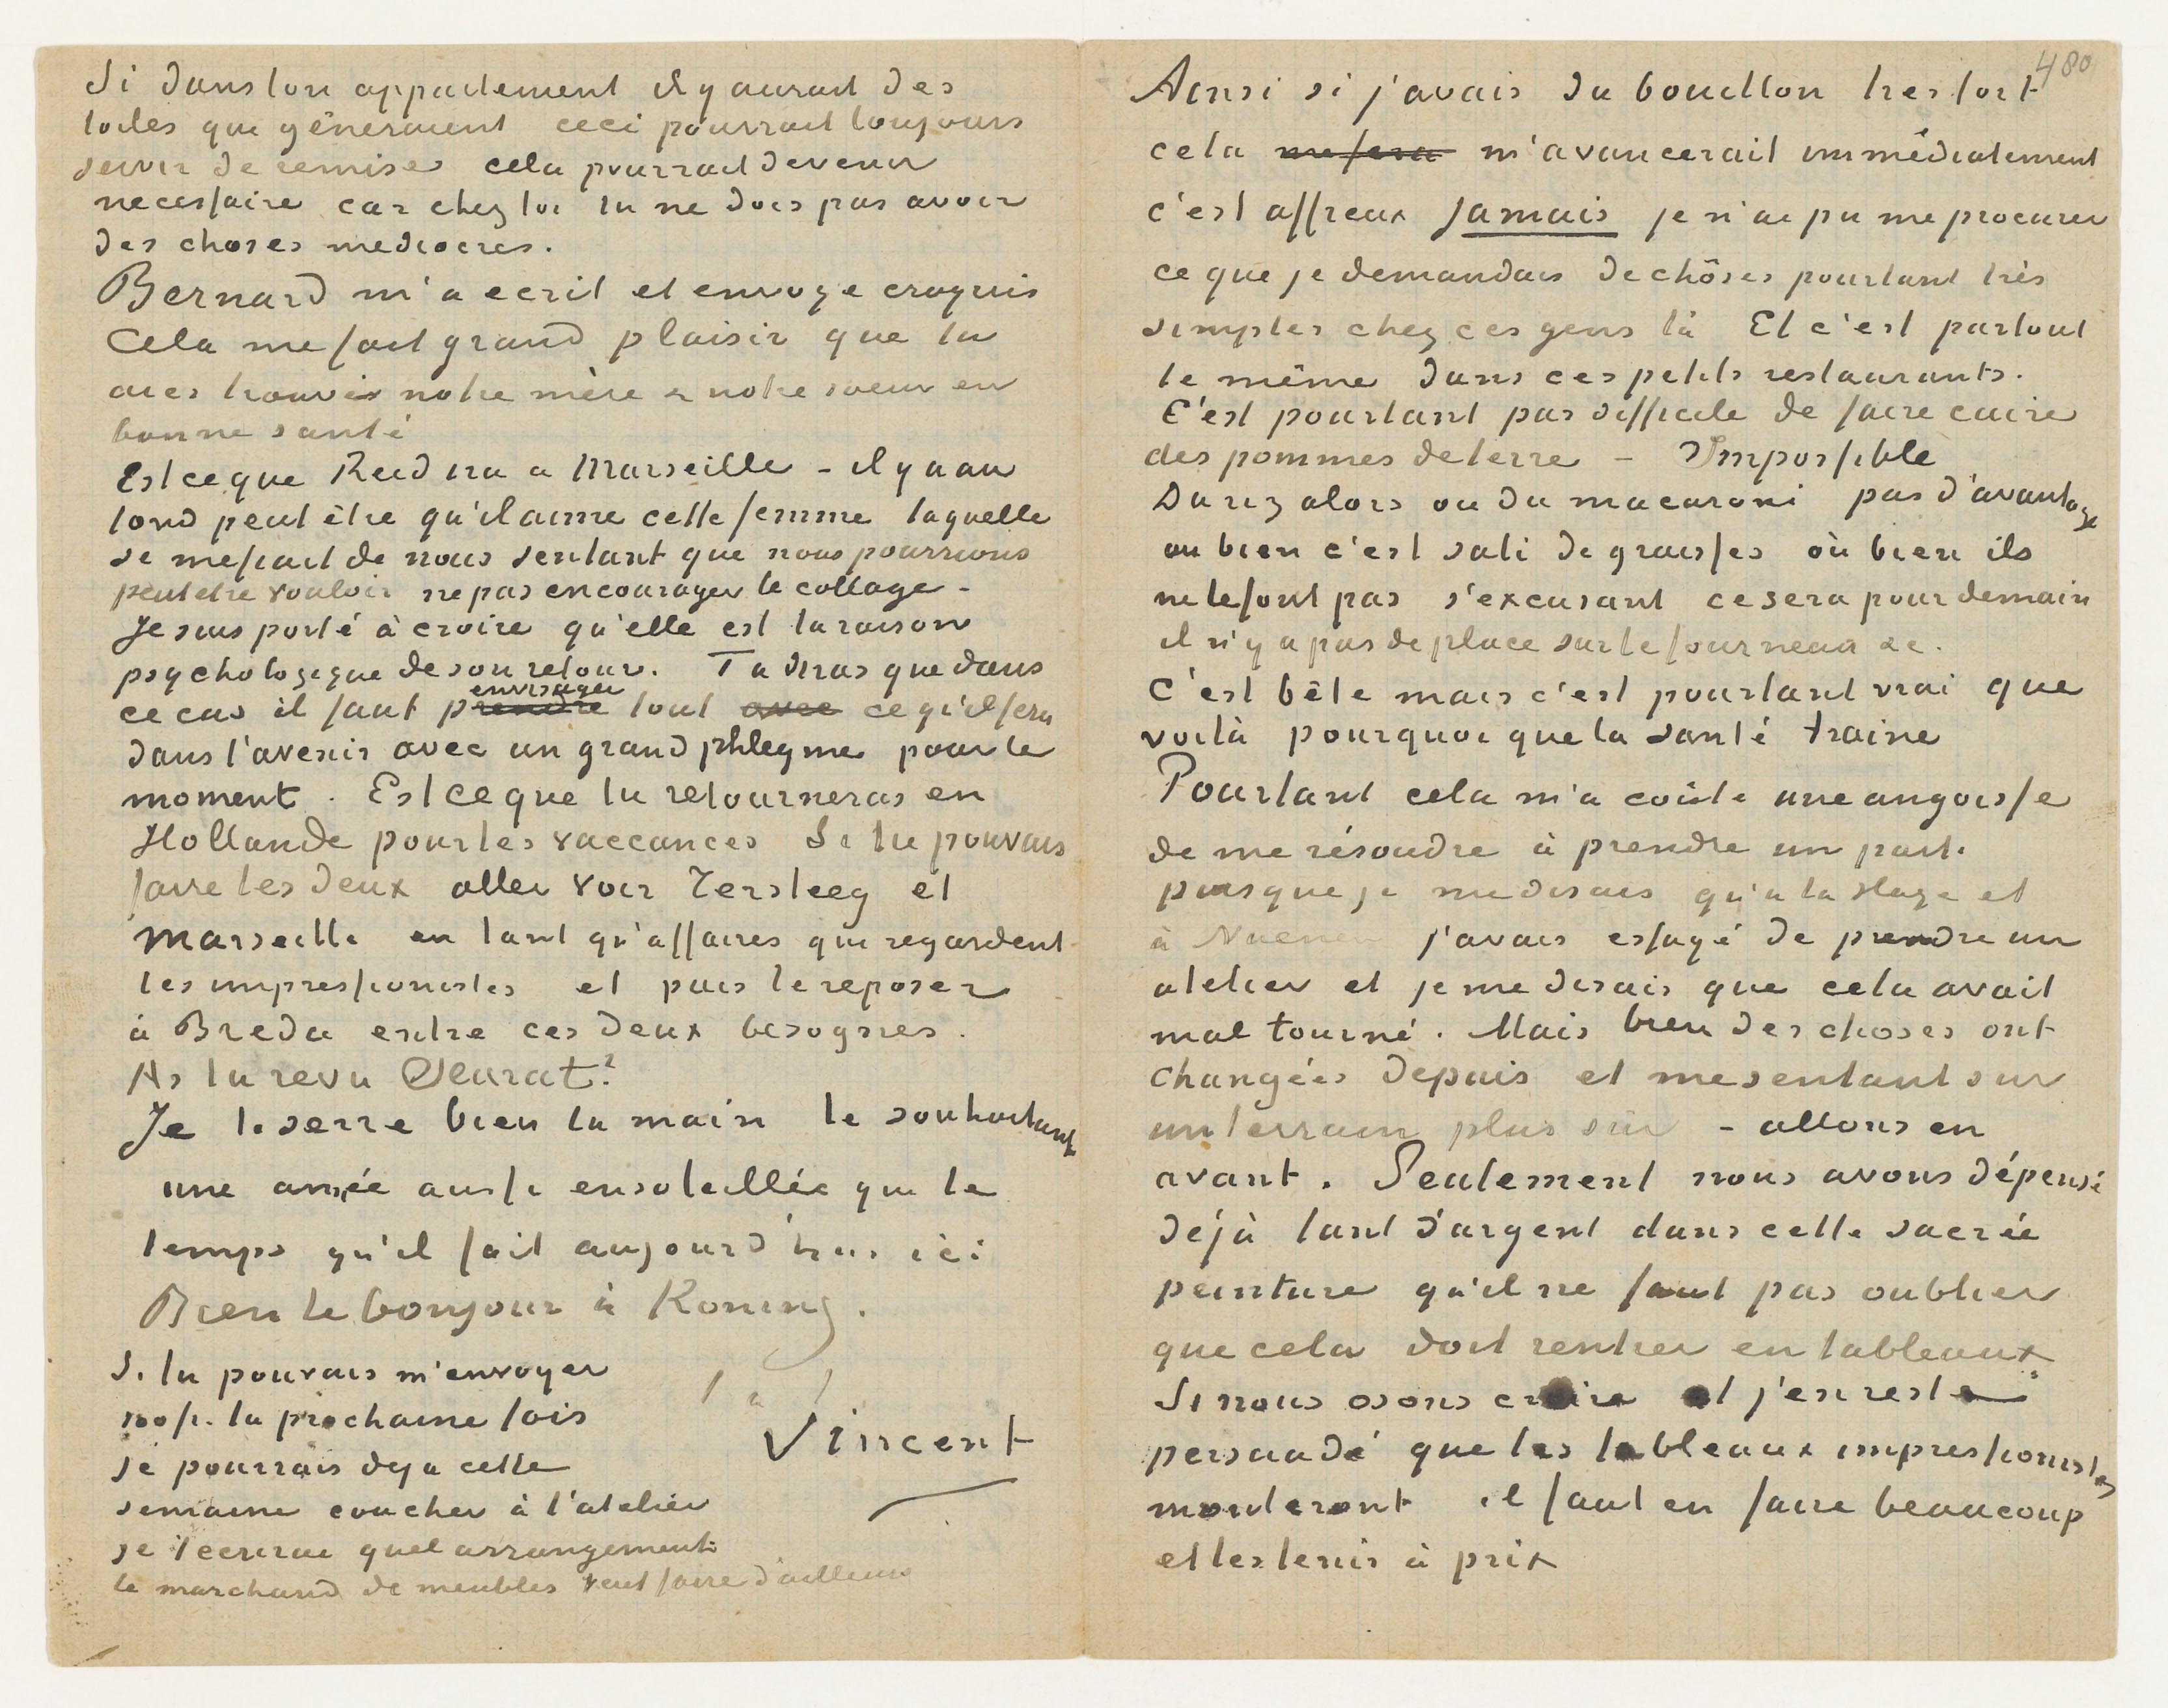 Si dans ton appartement il y aurait des
toiles qui gêneraient ceci pourrait toujours
servir de remise cela pourrait devenir
necessaire car chez toi tu ne dois pas avoir
des choses mediocres.
Bernard m'a ecrit et envoye croquis
Cela me fait grand plaisir que tu
aies trouvés notre mère & notre soeur en
bonne santé
Est ce que Reid ira a Marseille - il y a au
fond peut être qu'il aime cette femme laquelle
se mefiait de nous sentant que nous pourrions
peutetre vouloir ne pas encourager le collage -
Je suis porté à croire qu'elle est la raison
psychologique de son retour. Tu diras que dans
envisager
ce cas il faut prendre tout avec ce qu'il fera
dans l'avenir avec un grand phlegme pour le
moment. Est ce que tu retourneras en
Hollande pour les vaccances Si tu pouvais
faire les deux aller voir Tersteeg et
Marseille en tant qu'affaires qui regardent
les impressionistes et puis te reposer
à Breda entre ces deux besognes.
As tu revu Seurat?
Je te serre bien la main te souhaitant
une année aussi ensoleillée que le
temps qu'il fait aujourd'hui ici
Bien le bonjour à Koning.
t. à t.
Vincent
Si tu pouvais m'envoyer
100 fr. la prochaine fois
je pourrais deja cette
semaine coucher à l'atelier
je t'ecrirai quel arrangement
le marchand de meubles veut faire d'ailleurs
480
Ainsi si j'avais du bouillon tres fort
cela me fera m'avancerait immédiatement
c'est affreux jamais je n'ai pu me procurer
ce que je demandais de chôses pourtant très
simples chez ces gens là Et c'est partout
le même dans ces petits restaurants.
C'est pourtant pas difficile de faire cuire
des pommes de terre - Impossible
Du riz alors ou du macaroni pas d'avantage
ou bien c'est sali de graisses où bien ils
ne le font pas s'excusant ce sera pour demain
il n'y a pas de place sur le fourneau &c.
C'est bête mais c'est pourtant vrai que
voilà pourquoi que la santé traine
Pourtant cela m'a coûté une angoisse
de me résoudre à prendre un parti
puisque je me disais qu'a la Haye et
à Nuenen j'avais essayé de prendre un
atelier et je me disais que cela avait
mal tourné. Mais bien des choses ont
changées depuis et me sentant sur
un terrain plus sûr - allons en
avant. Seulement nous avons dépensé
déjà tant d'argent dans cette sacrée
peinture qu'il ne faut pas oublier
que cela doit rentrer en tableaux
Si nous osons croire et j'en reste
persuadé que les tableaux impressionistes
monteront il faut en faire beaucoup
et les tenir à prix